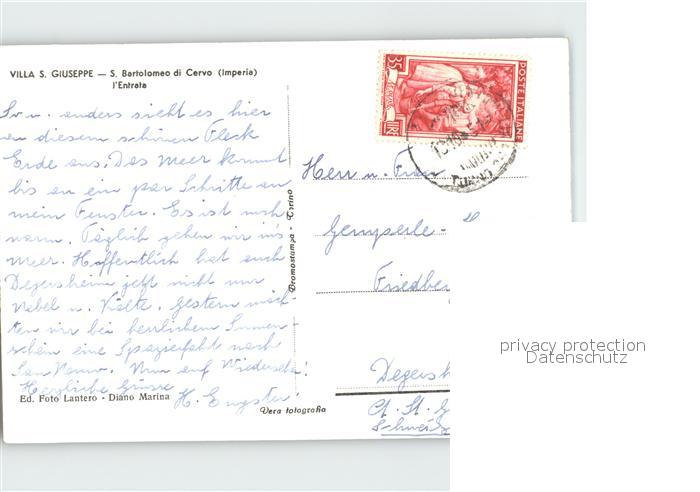 VILLA S. GIUSEPPE — S. Bartolomeo di Cervo (Imperia)
l'Entrata
So u. anders sieht es hier
an diesem schönen Fleck
Erde aus. Das Meer kommt
bis an ein par Schritte an
mein Fenster. Es ist noch
warm. Täglich gehen wir ins
Meer. Hoffentlich hat auch
Degersheim jetzt nicht nur
Nebel u. Kälte. Gestern mach-
ten wir bei herrlichem Sonnen-
schein eine Spazierfahrt nach
San Remo. Nun auf Wiedersehn!
Herzliche Grüsse
H. Engster!
Ed. Foto Lantero - Diano Marina
Vera fotografia
Bromostampa - Torino
35
LIRE
POSTE ITALIANE
Herr u. Frau
Gemperle-
Friedber
Degersh
Ct. St. G
Schweiz
privacy protection
Datenschutz